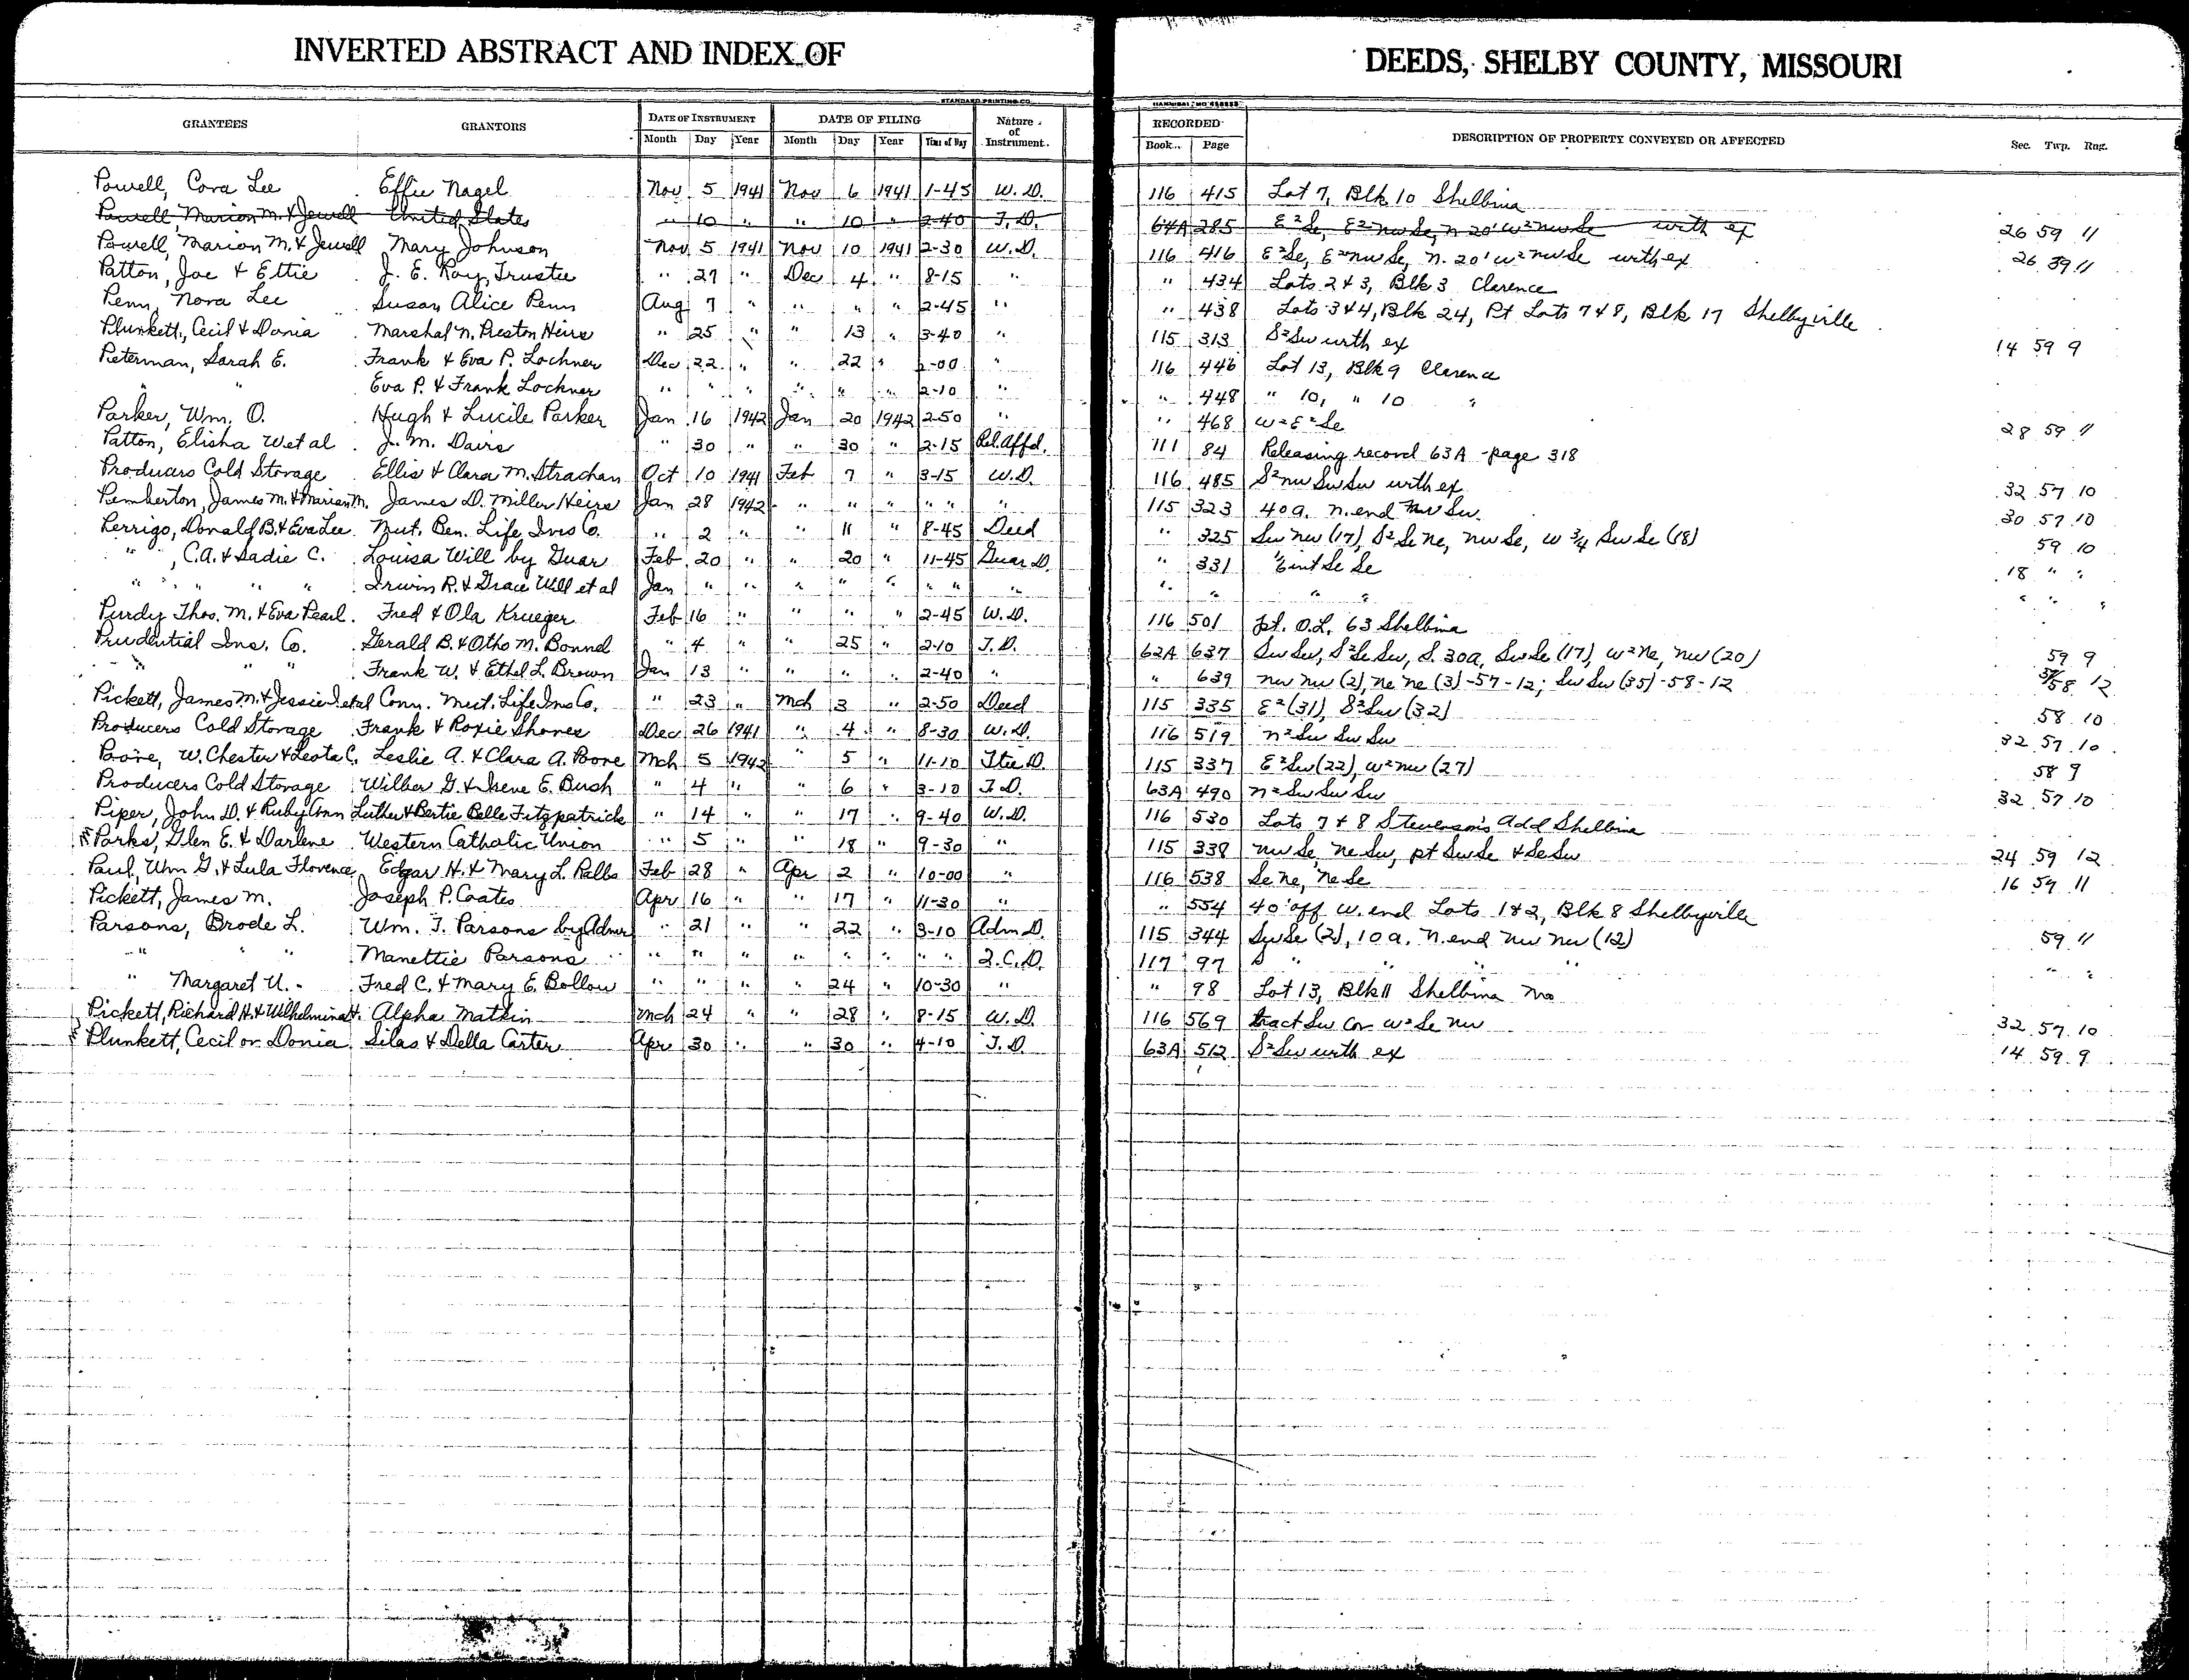 INVERTED ABSTRACT AND INDEX OF DEEDS, SHELBY COUNTY, MISSOURI
STANDARD PRINTING CO. HANNIBAL, MO.
GRANTEES GRANTORS DATE OF INSTRUMENT DATE OF FILING Nature of Instrument. RECORDED DESCRIPTION OF PROPERTY CONVEYED OR AFFECTED Sec. Twp. Rng.
Month Day Year Month Day Year Time of Day Book Page
Powell, Cora Lee Effie Nagel Nov 5 1941 Nov 6 1941 1-45 W.D. 116 415 Lot 7, Blk 10 Shelbina
Powell, Marion M. & Jewell United States " 10 " " 10 " 2-40 T.D. 64A 285 E²Se, E²nwSe, n 20' W²nwSe with ex 26 59 11
Powell, Marion M. & Jewell Mary Johnson Nov 5 1941 Nov 10 1941 2-30 W.D. 116 416 E²Se, E²nwSe, n. 20' W²nwSe with ex 26 59 11
Patton, Joe & Ettie J. E. Roy, Trustee " 27 " Dec 4 " 8-15 " " 434 Lots 2 & 3, Blk 3 Clarence
Penn, Nora Lee Susan Alice Penn Aug 7 " " " " 2-45 " " 438 Lots 3 & 4, Blk 24, Pt Lots 7 & 8, Blk 17 Shelbyville
Plunkett, Cecil & Donia Marshal N. Preston Heirs " 25 " " 13 " 3-40 " 115 313 S²Sw with ex 14 59 9
Peterman, Sarah E. Frank & Eva P. Lochner Dec 22 " " 22 " 2-00 " 116 446 Lot 13, Blk 9 Clarence
" " Eva P. & Frank Lochner " " " " " " 2-10 " " 448 " 10, " 10 "
Parker, Wm. O. Hugh & Lucile Parker Jan 16 1942 Jan 20 1942 2-50 " " 468 W²E²Se 28 59 11
Patton, Elisha W et al J. M. Davis " 30 " " 30 " 2-15 Rel. Affd. 111 84 Releasing record 63A - page 318
Producers Cold Storage Ellis & Clara M. Strachan Oct 10 1941 Feb 7 " 3-15 W.D. 116 485 S²nw Sw Sw with ex 32 57 10
Pemberton, James M. & Marian M. James D. Miller Heirs Jan 28 1942 " " " " " " 115 323 40a. n. end nw Sw. 30 57 10
Perrigo, Donald B. & Eva Lee Mut. Ben. Life Ins Co. " 2 " " 11 " 8-45 Deed " 325 Sw nw (17), S²Se Ne, nw Se, W ¾ Sw Se (18) 59 10
" , C.A. & Sadie C. Louisa Will by Guar Feb 20 " " 20 " 11-45 Guar D. " 331 Se Se 18 " "
" " " " Irwin R. & Grace Will et al Jan " " " " " " " " " " " " " " "
Purdy Thos. M. & Eva Pearl Fred & Ola Krueger Feb 16 " " " " 2-45 W.D. 116 501 pt. O.L. 63 Shelbina
Prudential Ins. Co. Gerald B. & Otho M. Bonnel " 4 " " 25 " 2-10 T.D. 62A 637 Sw Sw, S²Se Sw, S. 30a, Sw Se (17), W²Ne, nw (20) 59 9
" " " Frank W. & Ethel L. Brown Jan 13 " " " " 2-40 " " 639 nw nw (2), ne ne (3)-57-12; Sw Sw (35)-58-12 57/58 12
Pickett, James M. & Jessie I et al Conn. Mut. Life Ins Co. " 23 " Mch 3 " 2-50 Deed 115 335 E²(31), S²Sw (32) 58 10
Producers Cold Storage Frank & Roxie Shones Dec 26 1941 " 4 " 8-30 W.D. 116 519 n²Sw Sw Sw 32 57 10
Poore, W. Chester & Leota C. Leslie A. & Clara A. Poore Mch 5 1942 " 5 " 11-10 Ttee D. 115 337 E²Sw (22), W²nw (27) 58 9
Producers Cold Storage Wilber G. & Irene E. Bush " 4 " " 6 " 3-10 T.D. 63A 490 n²Sw Sw Sw 32 57 10
Piper, John D. & Ruby Ann Luther & Bertie Belle Fitzpatrick " 14 " " 17 " 9-40 W.D. 116 530 Lots 7 & 8 Stevenson's Add Shelbina
Parks, Glen E. & Darlene Western Catholic Union " 5 " " 18 " 9-30 " 115 338 nw Se, Ne Sw, pt Sw Se & Se Sw 24 59 12
Paul, Wm G. & Lula Florence Edgar H. & Mary L. Ralls Feb 28 " Apr 2 " 10-00 " 116 538 Se Ne, Ne Se 16 59 11
Pickett, James M. Joseph P. Coates Apr 16 " " 17 " 11-30 " " 554 40' off W. end Lots 1 & 2, Blk 8 Shelbyville
Parsons, Brode L. Wm. T. Parsons by Admr " 21 " " 22 " 3-10 Adm D. 115 344 Sw Se (2), 10 a. n. end nw nw (12) 59 11
" " " Manettie Parsons " " " " " " " " Q.C.D. 117 97 " " " " " "
" Margaret U. Fred C. & Mary E. Bollow " " " " 24 " 10-30 " " 98 Lot 13, Blk 11 Shelbina Mo
Pickett, Richard H. & Wilhelmina H. Alpha Matkin Mch 24 " " 28 " 8-15 W.D. 116 569 tract Sw Cor W²Se nw 32 57 10
Plunkett, Cecil or Donia Silas & Della Carter Apr 30 " " 30 " 4-10 T.D. 63A 512 S²Sw with ex 14 59 9